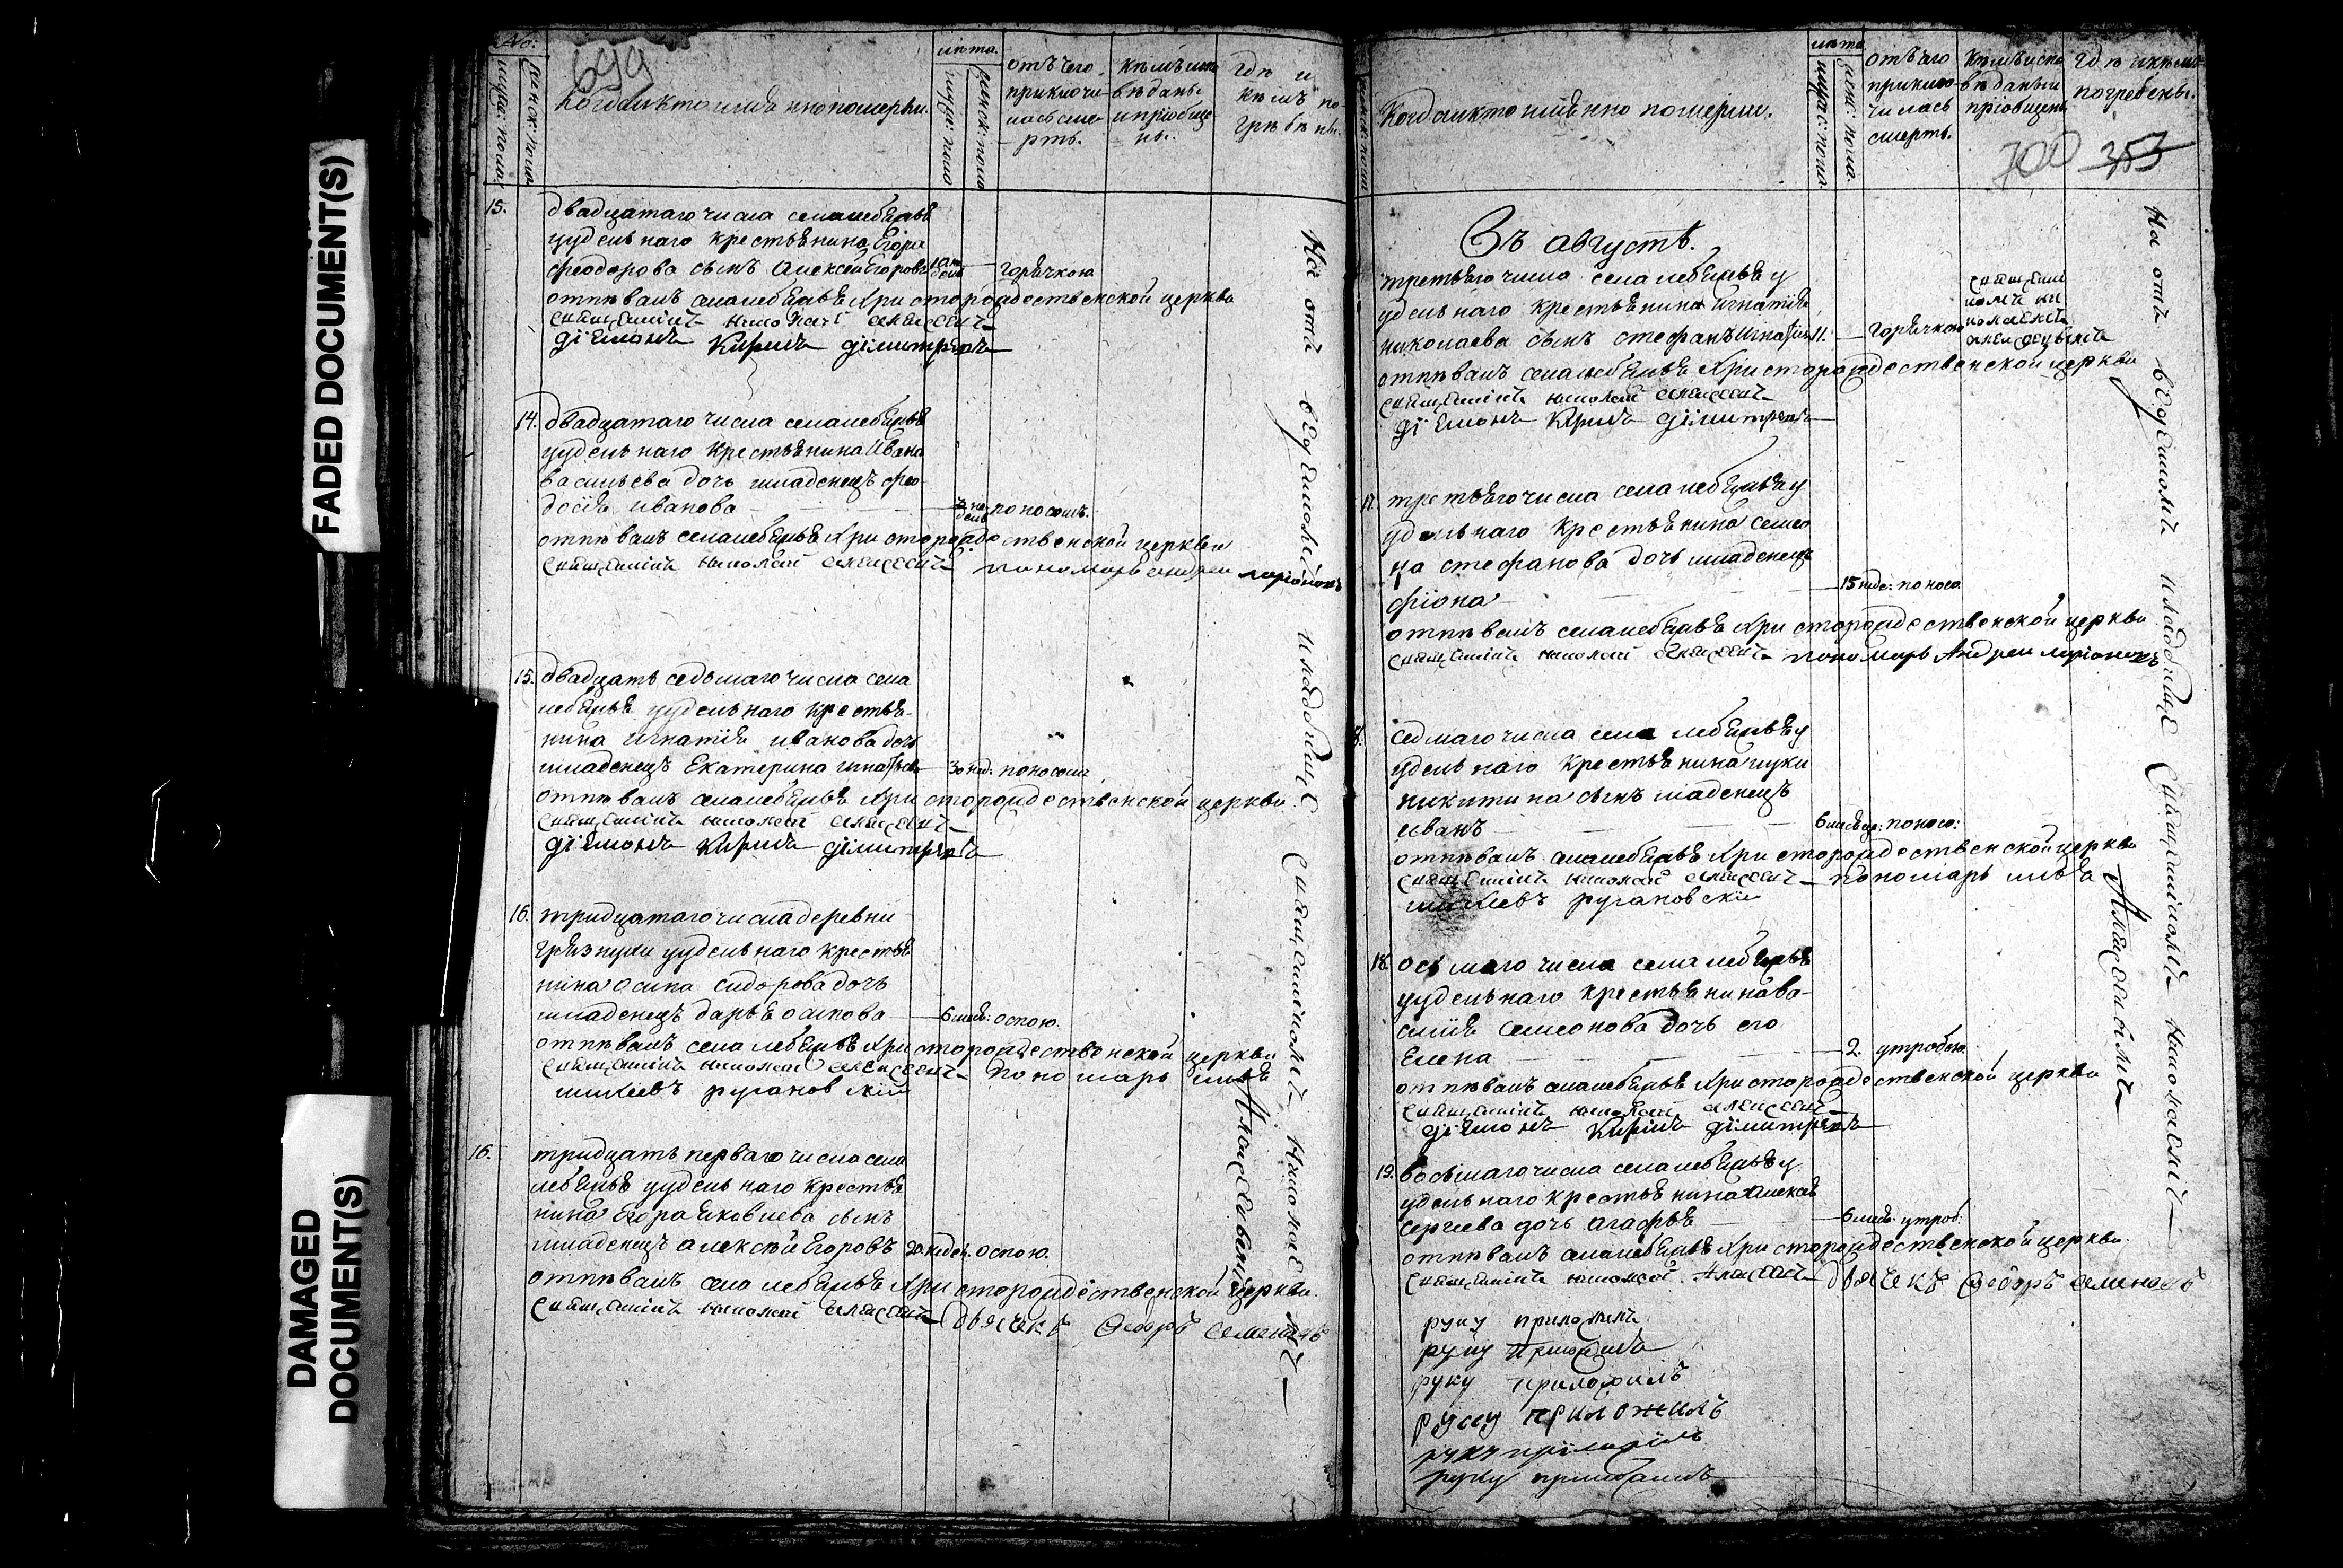 FADED DOCUMENT(S)
DAMAGED
DOCUMENT(S)
No:
699
мужс: пола
женск: пола
Когда и кто имѣнно помѣрли.
лѣта.
мужс: пола
женск: пола
отъ чего
приключи-
лась сме-
рть.
кѣмъ испо
вѣданы
и пріобще
ны.
гдѣ и
кѣмъ по-
грѣбѣны.
15.
двадцатаго числа села лебяжья
уудельнаго крестьянина Егора
феодорова сынъ Алексей Егоровъ
горячкою
отпѣванъ села лебяжья Христорождественской церкви
священникъ николай алексеевъ
діяконъ Кирилъ дімитріевъ
14.
двадцатаго числа села лебяжья
уудельнаго крестьянина Ивана
васильева дочь младенецъ фео-
досія иванова
поносомъ.
отпѣванъ села лебяжья Христорождественской церкви
священникъ николай алексеевъ пономарь андреи ларіоновъ
15.
двадцать седьмаго числа села
лебяжья уудельнаго крестья-
нина игнатія иванова дочь
младенецъ Екатерина игнатьева 30 нед: поносомъ
отпѣванъ села лебяжья Христорождественской церкви
священникъ николай алексеевъ
діяконъ Кирилъ дімитріевъ
16.
тридцатаго числа деревни
грязнухи уудельнаго крестья
нина осипа сидорова дочь
младенецъ дарья осипова 6 нед: оспою.
отпѣванъ села лебяжья Христорождественской церкви
священникъ николай алексеевъ пономарь илья
михеевъ ругановскій
16.
тридцать перваго числа села
лебяжья уудельнаго крестья
нина Егора яковлева сынъ
младенецъ алексѣй Егоровъ 20. недел. оспою.
отпѣванъ села лебяжья Христорождественской церкви.
священникъ николай алексеевъ дьячекъ Ѳедоръ семеновъ
На отъ веденномъ кладбище священникомъ николаемъ
Алексеевымъ
Когда и кто имѣнно помѣрли.
лѣта
мужс: пола.
женс: пола.
отъ чего
приклю-
чилась
смерть.
кѣмъ испо
вѣданы и
пріобщены
гдѣ и кѣмъ
погребены.
700 353
Въ августѣ.
третьяго числа села лебяжья у
удельнаго крестьянина игнатія
николаева сынъ стефанъ игнатіевъ 11. горячкою
священни
комъ ни
колаемъ
алексеевымъ
отпѣванъ села лебяжья Христорождественской церкви
священникъ николай алексеевъ
діяконъ Кирилъ дімитріевъ
17.
третьяго числа села лебяжья у
удельнаго крестьянина семео
на стефанова дочь младенецъ
фіона 15 неде: поноса
отпѣванъ села лебяжья Христорождественской церкви
священникъ николай алексеевъ пономарь Андреи ларіоновъ
седмаго числа села лебяжья у
удельнаго крестьянина луки
никитина сынъ младенецъ
иванъ поносо:
отпѣванъ села лебяжья Христорождественской церкви
священникъ николай алексеевъ пономарь илья
михеевъ ругановскій
18.
осьмаго числа села лебяжья
уудельнаго крестьянина ва-
силія семенова дочь его
Елена 2. утробою
отпѣванъ села лебяжья Христорождественской церкви
священникъ николай алексеевъ
діяконъ Кирилъ дімитріевъ
19.
восьмаго числа села лебяжья у
удельнаго крестьянина алексея
сергиева дочь агафья 6 нед. утроб:
отпѣванъ села лебяжья Христорождественской церкви.
священникъ николай Алексеевъ дьячекъ Ѳедоръ семеновъ
руку приложилъ
руку приложилъ
руку приложилъ
руку приложилъ
руку приложилъ
руку приложилъ
На отъ веденномъ кладбище священникомъ николаемъ
Алексеевымъ